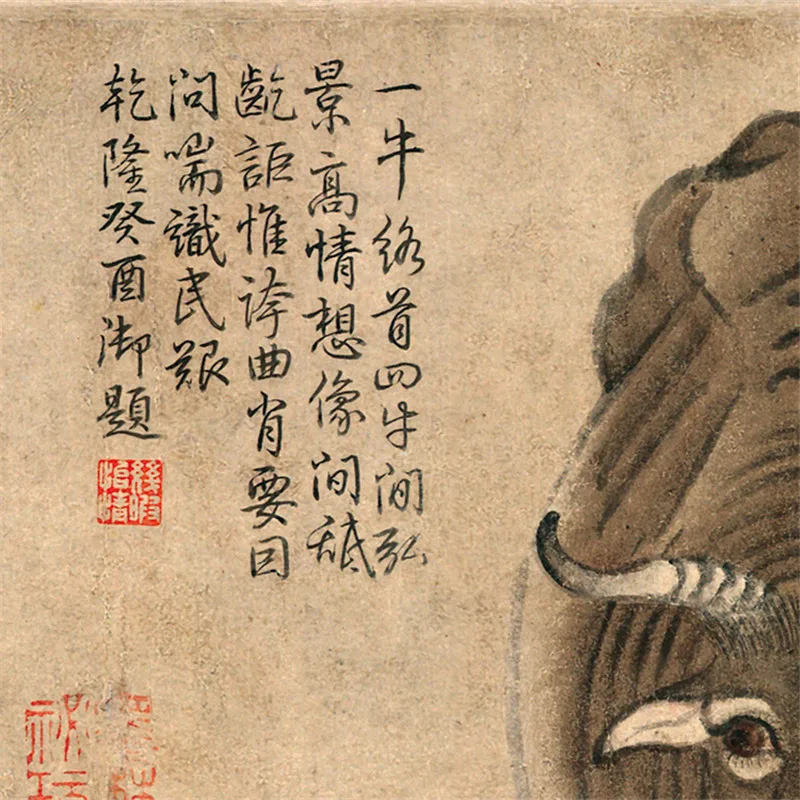 一牛絡首四牛閒弘
景高情想像間舐
齕詎惟誇曲肖要因
問喘識民艱
乾隆癸酉御題
幾暇
怡情